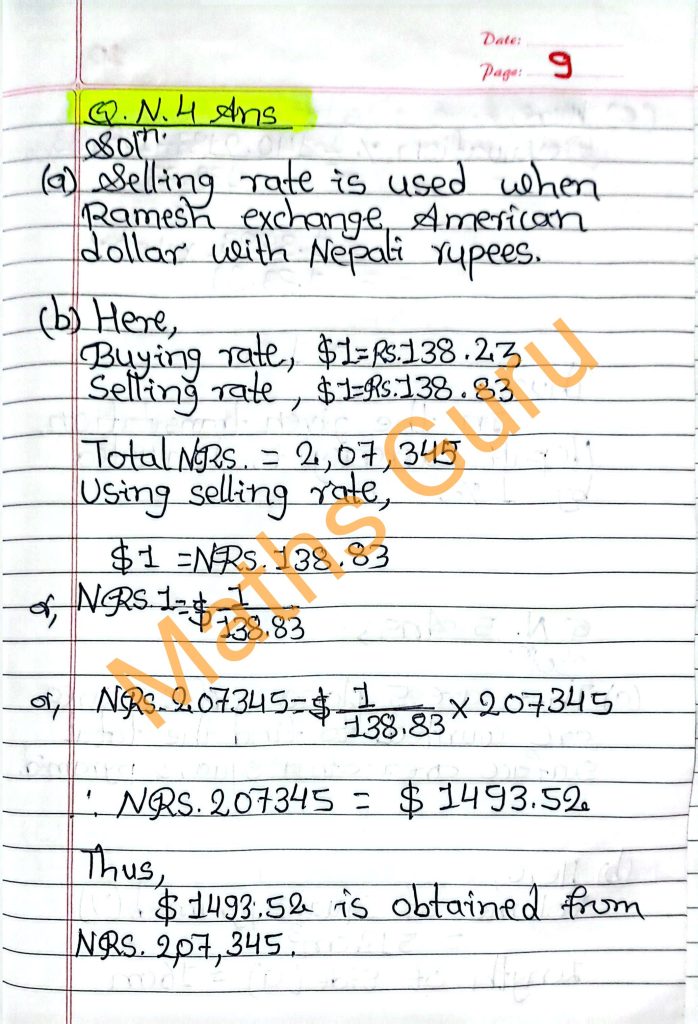 Date:
Page: 9
Q.N.4 Ans
Solⁿ:
(a) Selling rate is used when
Ramesh exchange American
dollar with Nepali rupees.
(b) Here,
Buying rate, $1=RS.138.23
Selling rate, $1=RS.138.83
Total NRs. = 2,07,345
Using selling rate,
$1 = NRS.138.83
or, NRS.1=$ 1/138.83
or, NRS.207345=$ 1/138.83 × 207345
∴ NRS.207345 = $1493.52
Thus,
$1493.52 is obtained from
NRS. 2,07,345.
Maths Guru